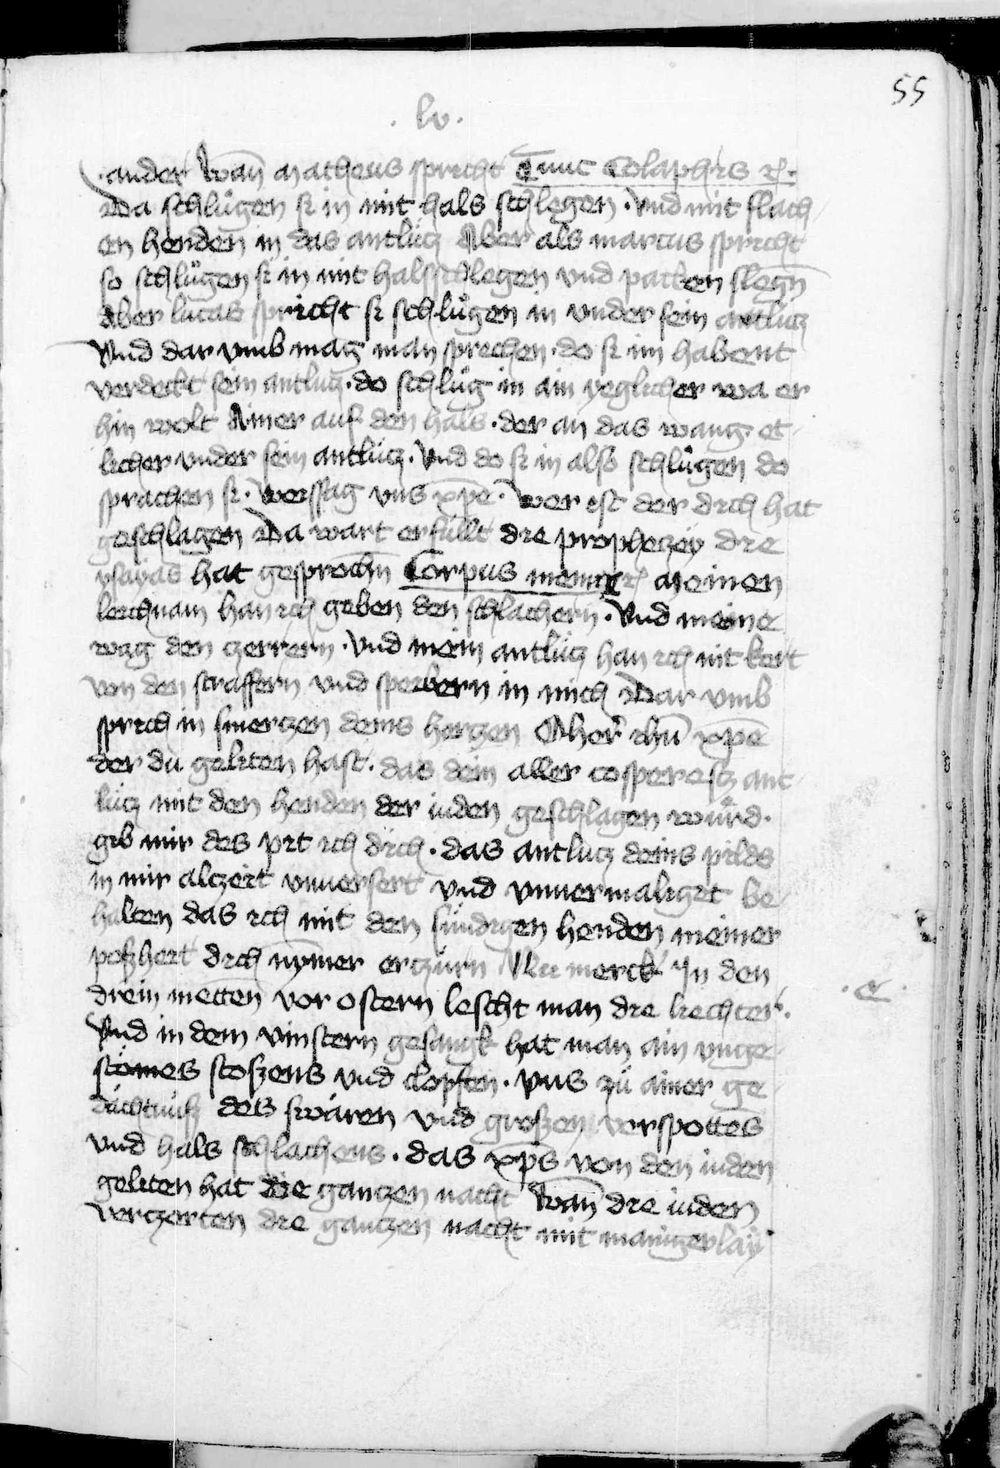 55
. lv .
ander Wan̄ Matheus spricht Tunc Colaphis rͨ.
Da schlůgen si in mit hals schlegen · Vnd mit flach
en henden in das antlücz Aber als marcus spricht
so schlůgen si in mit halsschlegen vnd patken slegn̄
Aber lucas spricht si schlůgen in vnder sein antlucz
Vnd dar vmb mag man sprechen · do si im habent
verdeckt sein antlucz · do schlůg in ain yeglicher wa er
hin wolt Ainer auf den hals · der an das wang · et
licher vnder sein antlücz · Vnd do si in also schlůgen do
sprachen si · Weyssag vns xp̄e · Wer ist der dich hat
geschlagen Da wart erfüllt die prophezey die
ysayas hat gesprochn̄ Corpus meum rͨ Meinen
leichnam han ich geben den schlachern · Vnd meine
wag den zerrern · Vnd mein antlücz han ich nit kert
von den straffern vnd speibern in mich Dar vmb
sprich in smerczen deins herczen O her ihū xp̄e
der dü geliten hast · das dein aller cosperestz ant
lücz mit den henden der iuden geschlagen würd ·
gib mir des pit ich dich · das antlucz deins pilds
in mir alczeit vnuersert vnd vnuermaliget be
halten das ich mit den sündigen henden meiner
poszheit dich nȳmer erczürn Nu merck In den
drein metten vor ostern lescht man die liechter ·
· e ·
Vnd in dem vinstern gesangk hat man ain vnge
stömes stoszens vnd clopfen · vns zü ainer ge
dächtnüsz des swären vnd groszen verspottes
vnd hals schlachens · das xp̄s von den iuden
geliten hat die ganczen nacht Wan̄ die iuden
verzerten die ganczen nacht mit mainigerlay